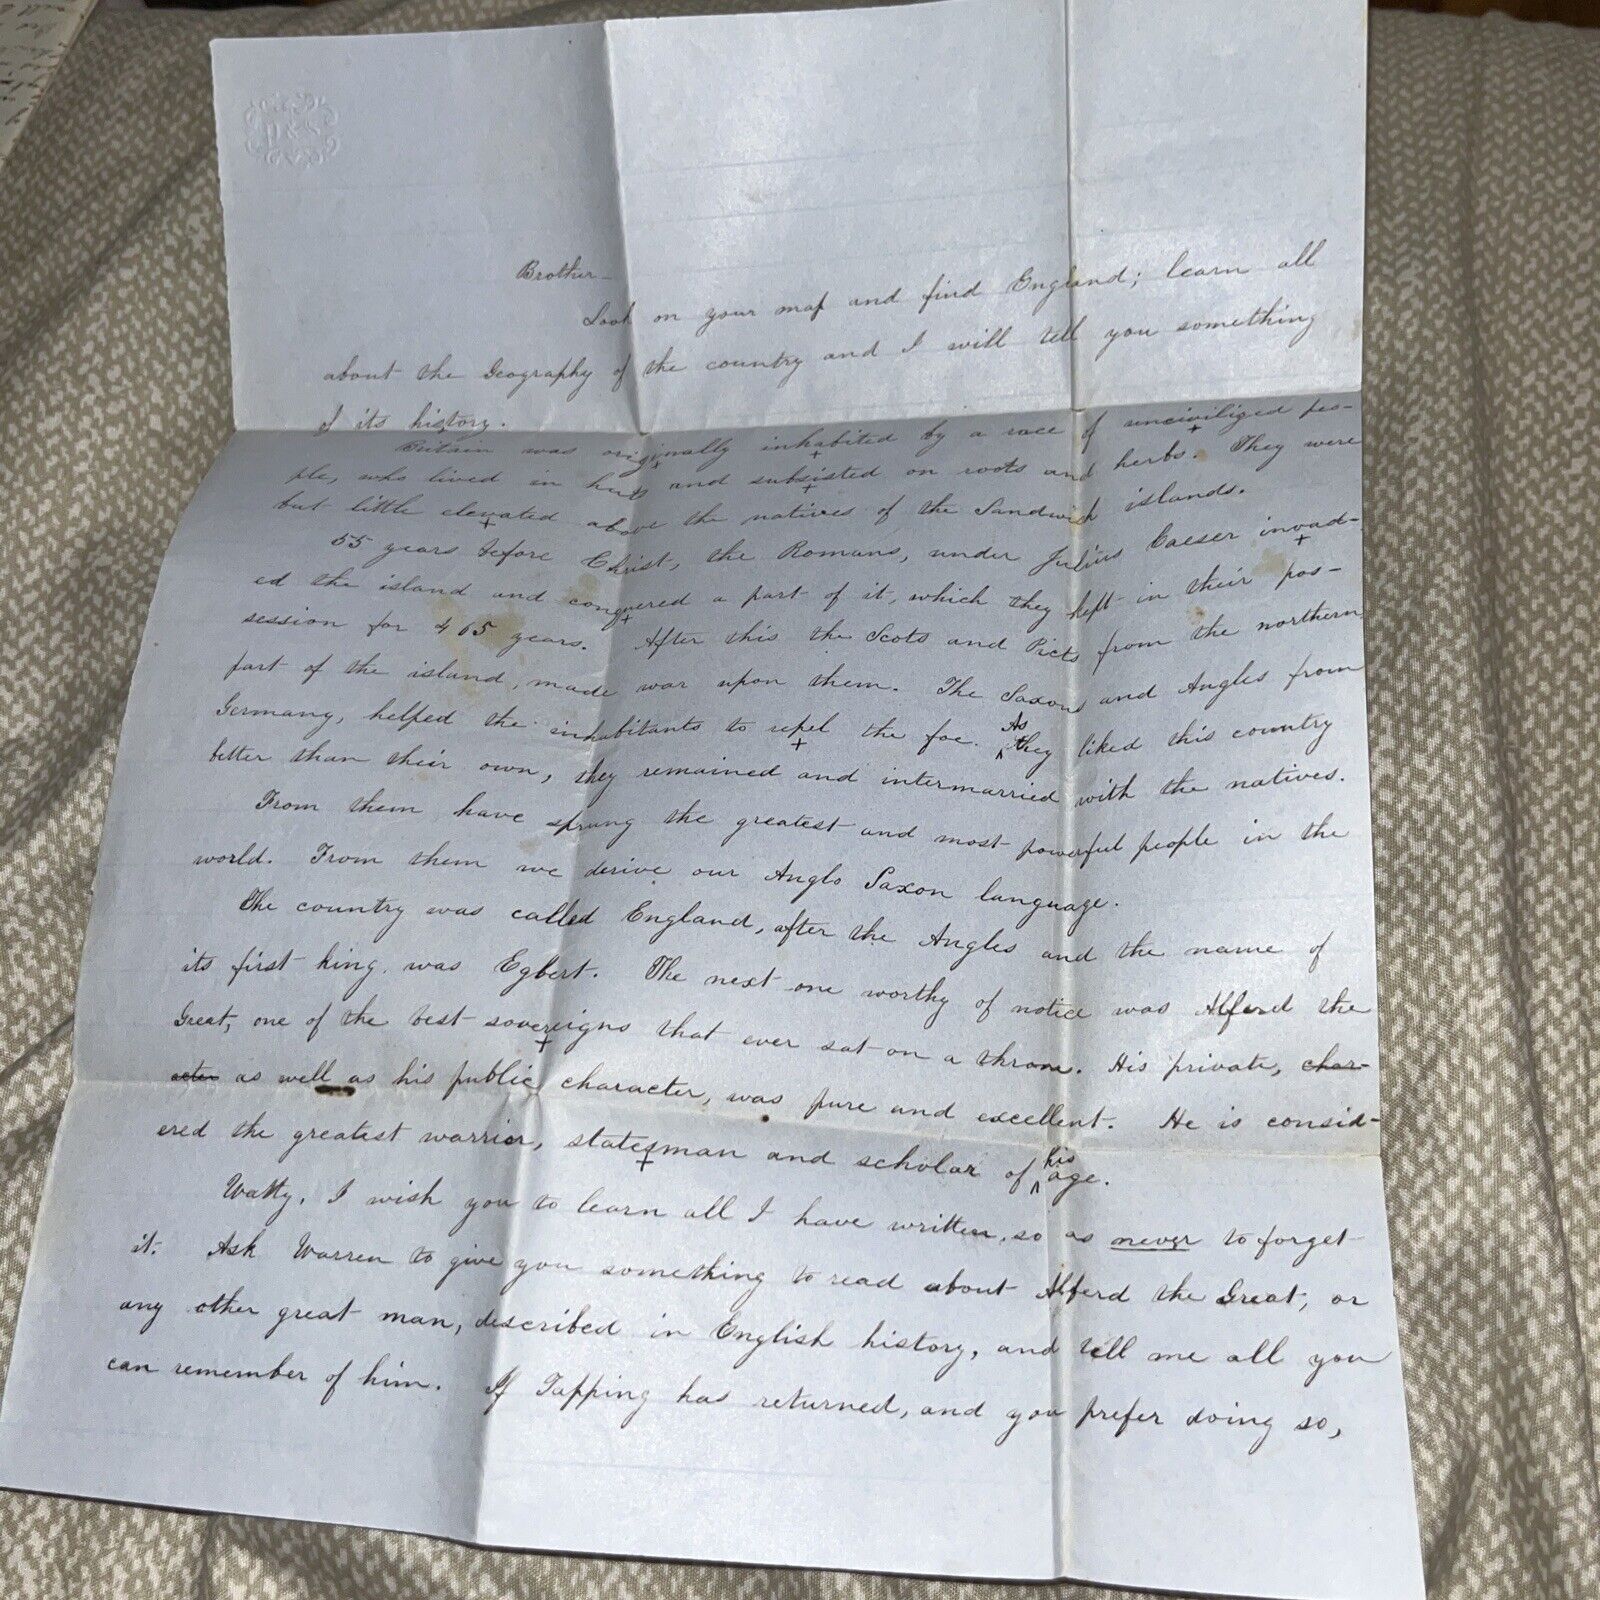 P&S
Brother—
Look on your map and find England; learn all
about the Geography of the country and I will tell you something
of its history.
Britain was originally inhabited by a race of uncivilized peo-
ple, who lived in huts and subsisted on roots and herbs. They were
but little elevated above the natives of the Sandwich islands.
55 years before Christ, the Romans, under Julius Caeser invad-
ed the island and conquered a part of it, which they kept in their pos-
session for 465 years. After this the Scots and Picts from the northern
part of the island, made war upon them. The Saxons and Angles from
Germany, helped the inhabitants to repel the foe. As they liked this country
better than their own, they remained and intermarried with the natives.
From them have sprung the greatest and most powerful people in the
world. From them we derive our Anglo Saxon language.
The country was called England, after the Angles and the name of
its first king, was Egbert. The next one worthy of notice was Alferd the
Great, one of the best sovereigns that ever sat on a throne. His private, char-
acter as well as his public character, was pure and excellent. He is consid-
ered the greatest warrior, statesman and scholar of his age.
Watty, I wish you to learn all I have written, so as never to forget
it. Ask Warren to give you something to read about Alferd the Great, or
any other great man, described in English history, and tell me all you
can remember of him. If Tapping has returned, and you prefer doing so,